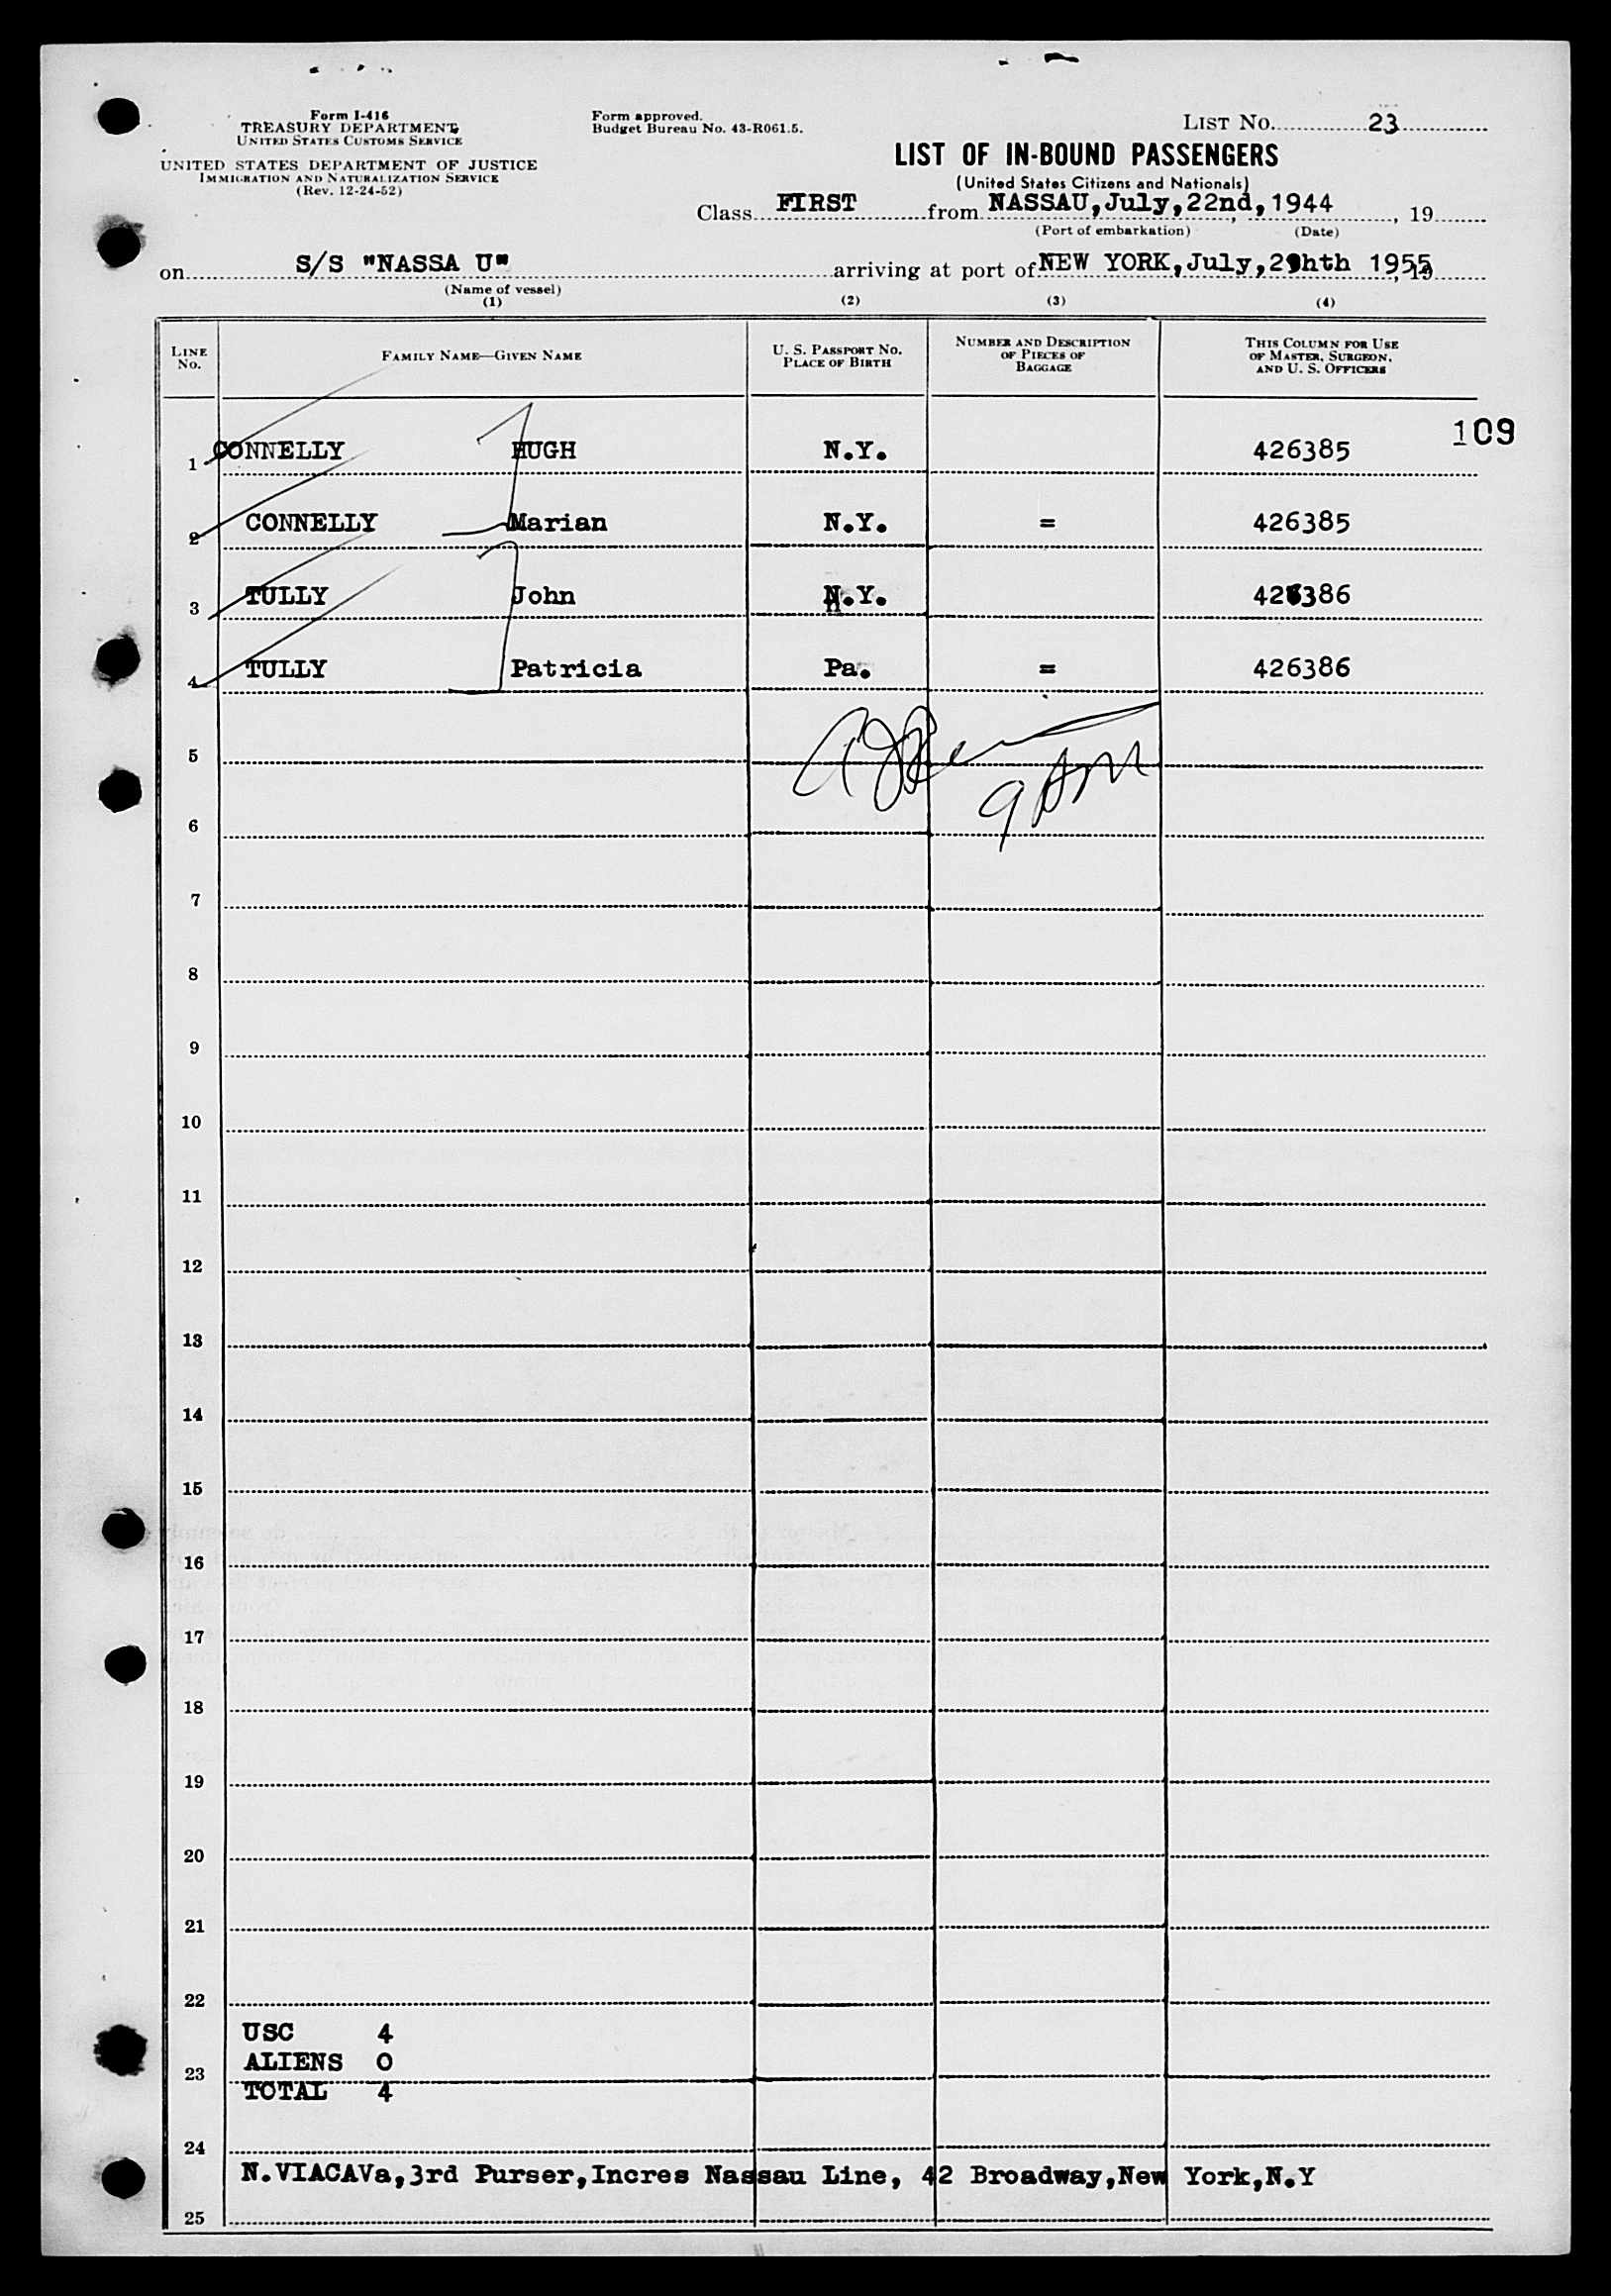 Form I-416
TREASURY DEPARTMENT
UNITED STATES CUSTOMS SERVICE
UNITED STATES DEPARTMENT OF JUSTICE
IMMIGRATION AND NATURALIZATION SERVICE
(Rev. 12-24-52)
Form approved.
Budget Bureau No. 43-R061.5.
LIST NO. 23
LIST OF IN-BOUND PASSENGERS
(United States Citizens and Nationals)
Class FIRST from NASSAU,July,22nd,1944, 19
(Port of embarkation) (Date)
on S/S "NASSA U" arriving at port of NEW YORK,July,29hth 1955, 19
(Name of vessel)
(1) (2) (3) (4)
LINE NO. FAMILY NAME—GIVEN NAME U. S. PASSPORT NO. PLACE OF BIRTH NUMBER AND DESCRIPTION OF PIECES OF BAGGAGE THIS COLUMN FOR USE OF MASTER, SURGEON, AND U. S. OFFICERS
109
1 CONNELLY HUGH N.Y. 426385
2 CONNELLY Marian N.Y. = 426385
3 TULLY John N.Y. 426386
4 TULLY Patricia Pa. = 426386
5
9 AM
6
7
8
9
10
11
12
13
14
15
16
17
18
19
20
21
22
USC 4
ALIENS 0
23
TOTAL 4
24
N.VIACAVa,3rd Purser,Incres Nassau Line, 42 Broadway,New York,N.Y
25